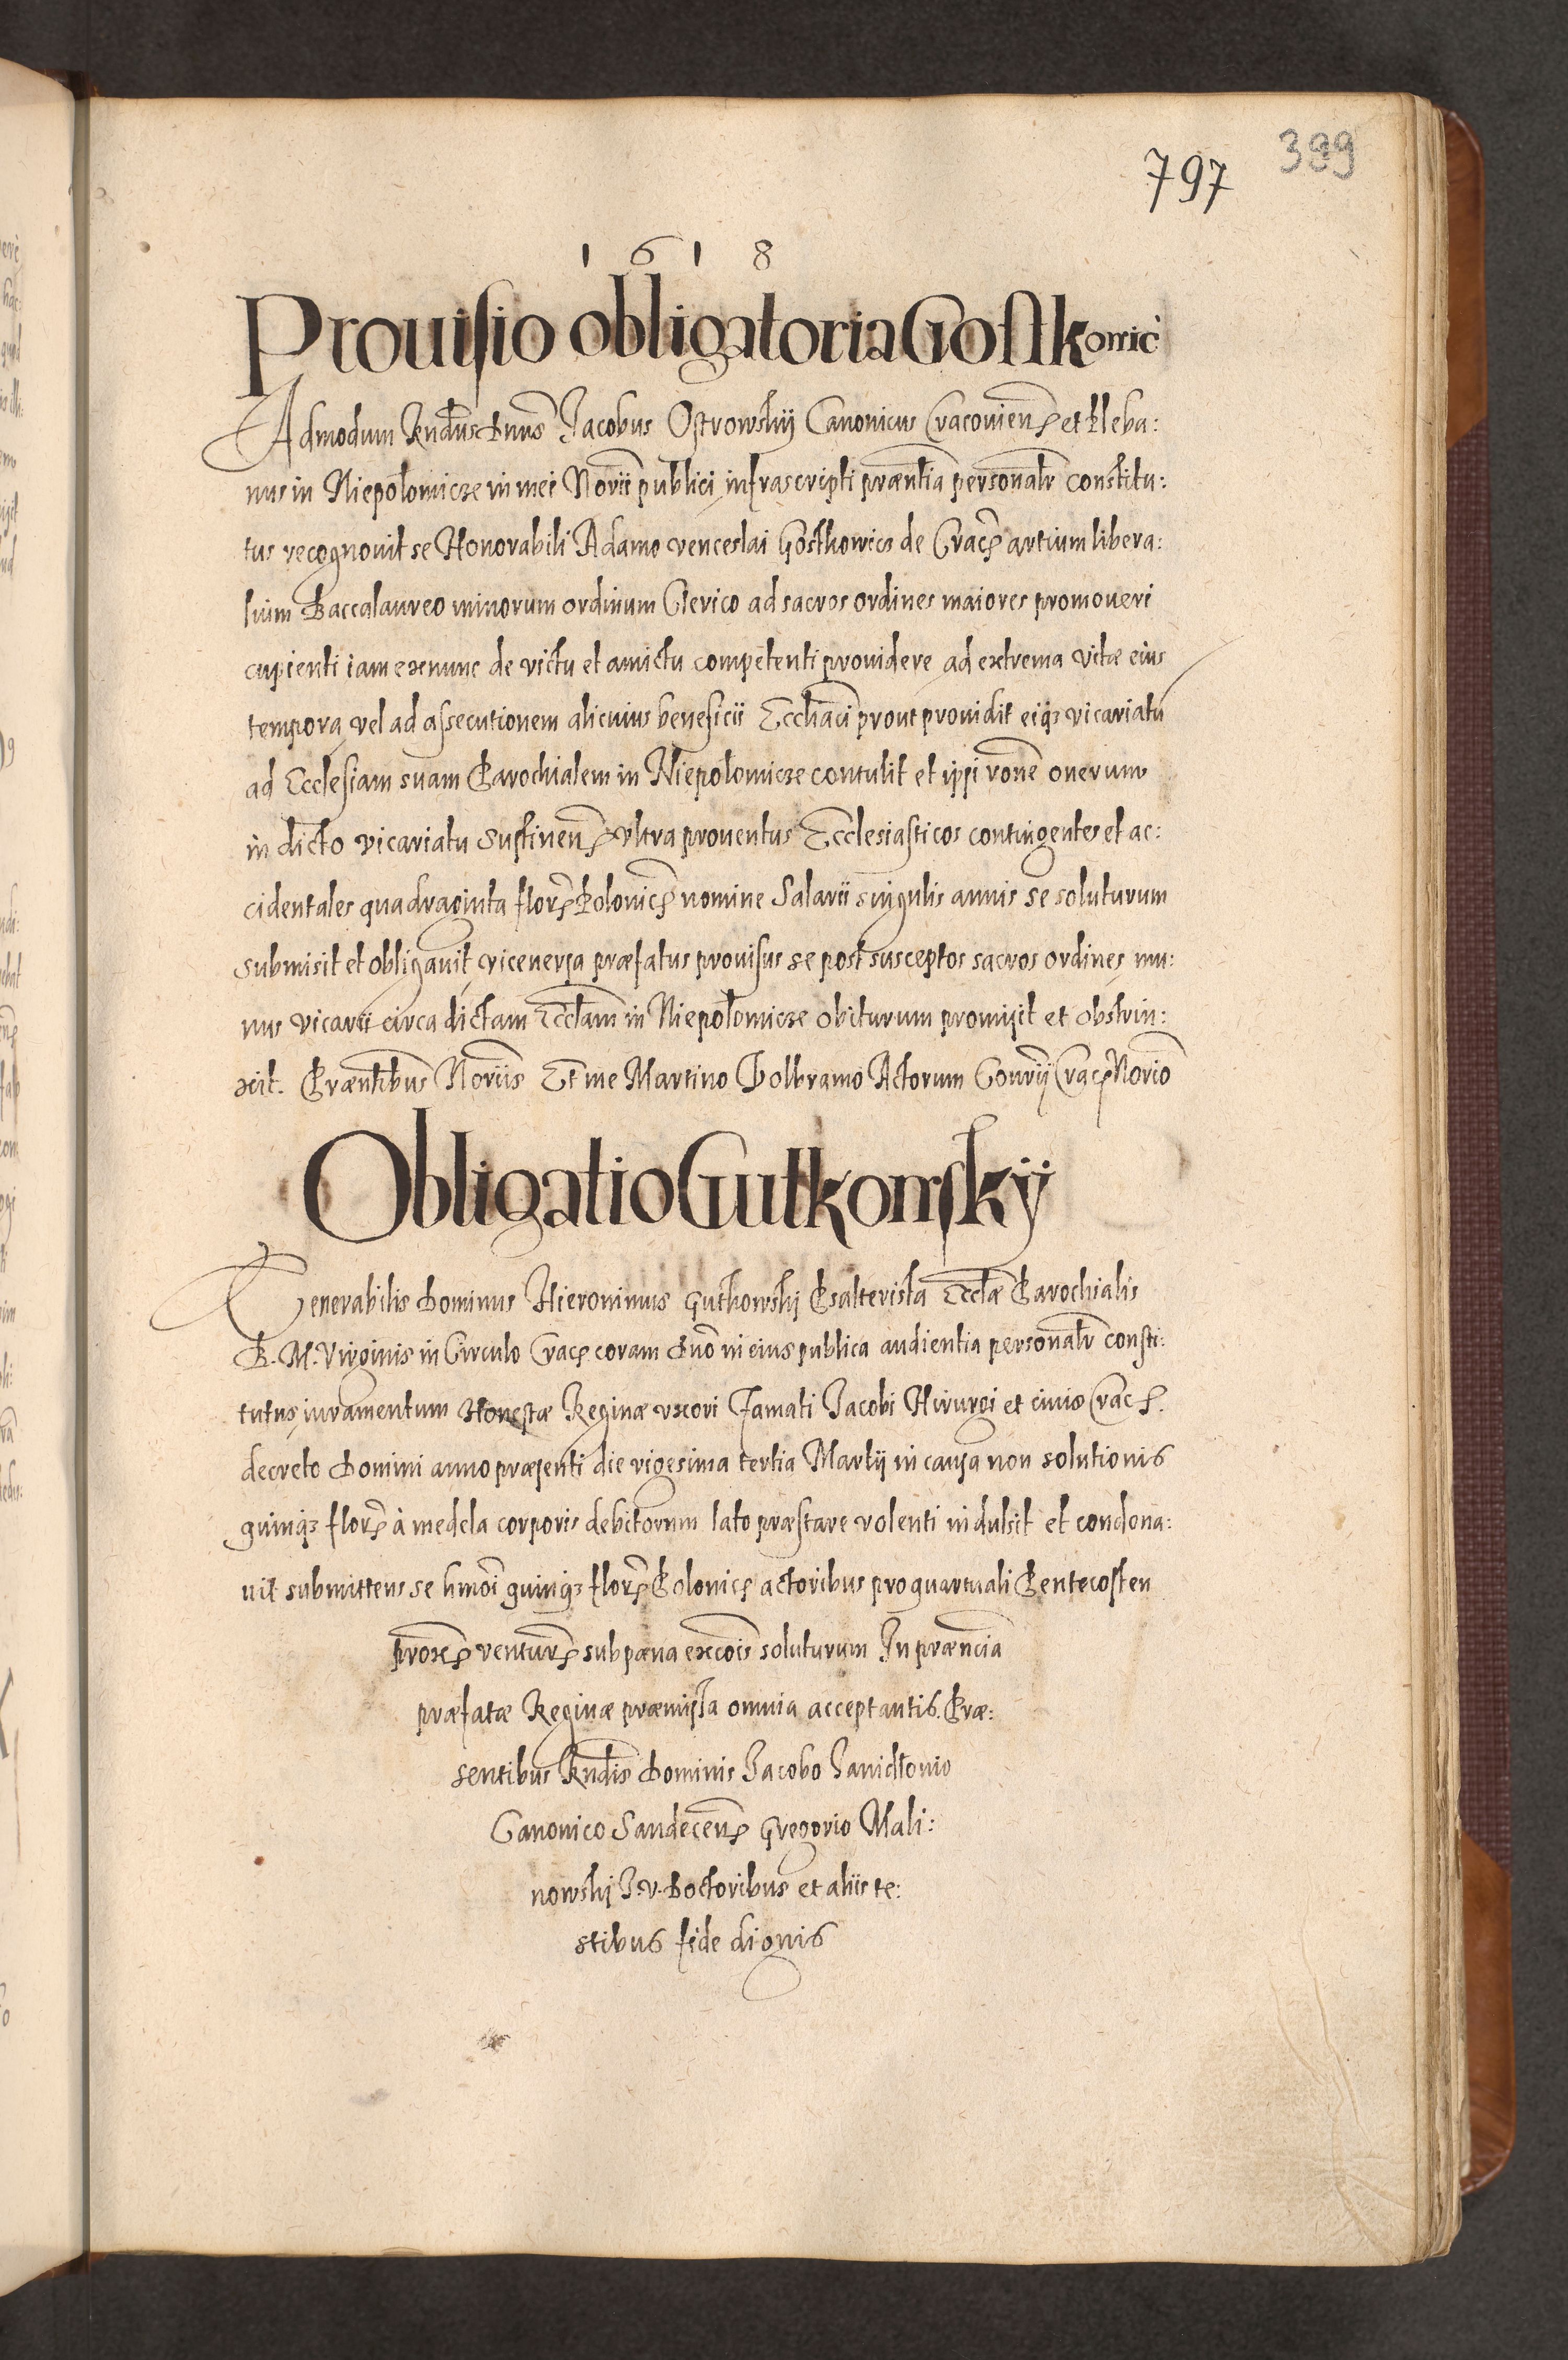 797 399
1 6 1 8
Prouisio obligatoria Gostkowic
Admodum Rndus Dnus Jacobus Ostrowskij Canonicus Cracouien et Pleba:
nus in Niepolomicze in mei Norii publici infrascripti præntia personalr constitu:
tus recognouit se Honorabili Adamo venceslai Gostkowics de Crac artium libera:
lium Baccalaureo minorum ordinum Clerico ad sacros ordines maiores promoueri
cupienti iam ex nunc de victu et amictu competenti prouidere ad extrema vitæ eius
tempora, vel ad assecutionem alicuius beneficii Eccliaci prout prouidit eiq3 vicariatu
ad Ecclesiam suam Parochialem in Niepolomicze contulit et ippi rone onerum
in dicto vicariatu Sustinen vltra prouentus Ecclesiasticos contingentes et ac:
cidentales quadraginta flor Polonic nomine Salarii singulis annis se soluturum
submisit et obligauit, vice uersa præfatus prouisus se post susceptos sacros ordines, mu:
nus vicarii circa dictam Ecclam in Niepolomicze obiturum promisit et obstrin:
xit. Præntibus Noriis Et me Martino Dolbramo Actorum Conrij Crac Norio
Obligatio Gutkowskij
Venerabilis Dominus Hieronimus Gutkowskj Psalterista Ecclæ Parochialis
B. M. Virginis in Circulo Crac. coram Dno in eius publica audientia personalr consti:
tutus, iuramentum Honestæ Reginæ vxori Famati Jacobi Hirurgi et ciuis Crac.
decreto Domini anno præsenti die vigesima tertia Martij in causa non solutionis
quinq3 flor à medela corporis debitorum lato præstare volenti indulsit et condona:
uit submittens se hmoi quinq3 flor Polonic actoribus pro quartuali Pentecosten
prox ventur sub pæna excois soluturum In præncia
præfatæ Reginæ præmissa omnia acceptantis. Præ:
sentibus Rndis Dominis Jacobo Janidlonio
Canonico Sandecen Gregorio Mali:
nowskj J. V. Doctoribus et aliis te:
stibus fide dignis